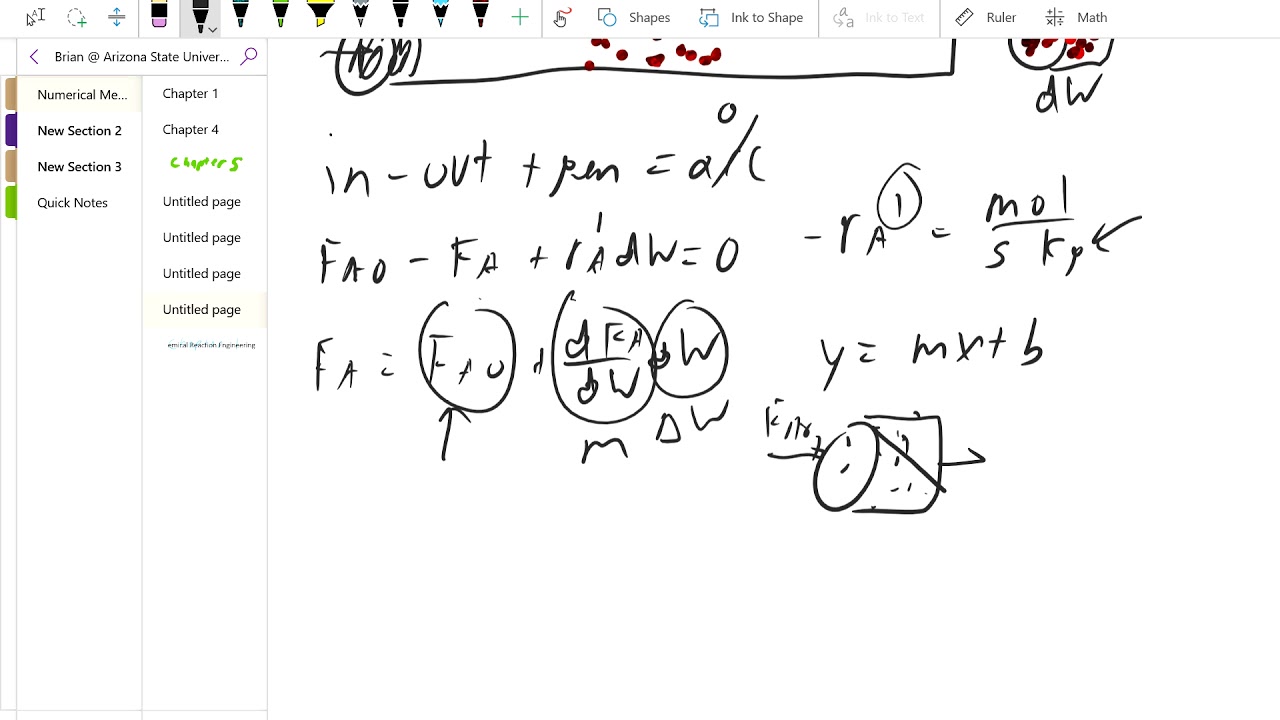 Shapes Ink to Shape Ink to Text Ruler Math
Brian @ Arizona State Univer...
Numerical Me...
New Section 2
New Section 3
Quick Notes
Chapter 1
Chapter 4
Chapter 5
Untitled page
Untitled page
Untitled page
Untitled page
emical Reaction Engineering
dW
in - out + gen = a/c 0
F_A0 - F_A + r_A' dW = 0
-r_A' = mol / s kg
F_A = F_A0 + dF_A/dW dW
m ΔW
y = mx + b